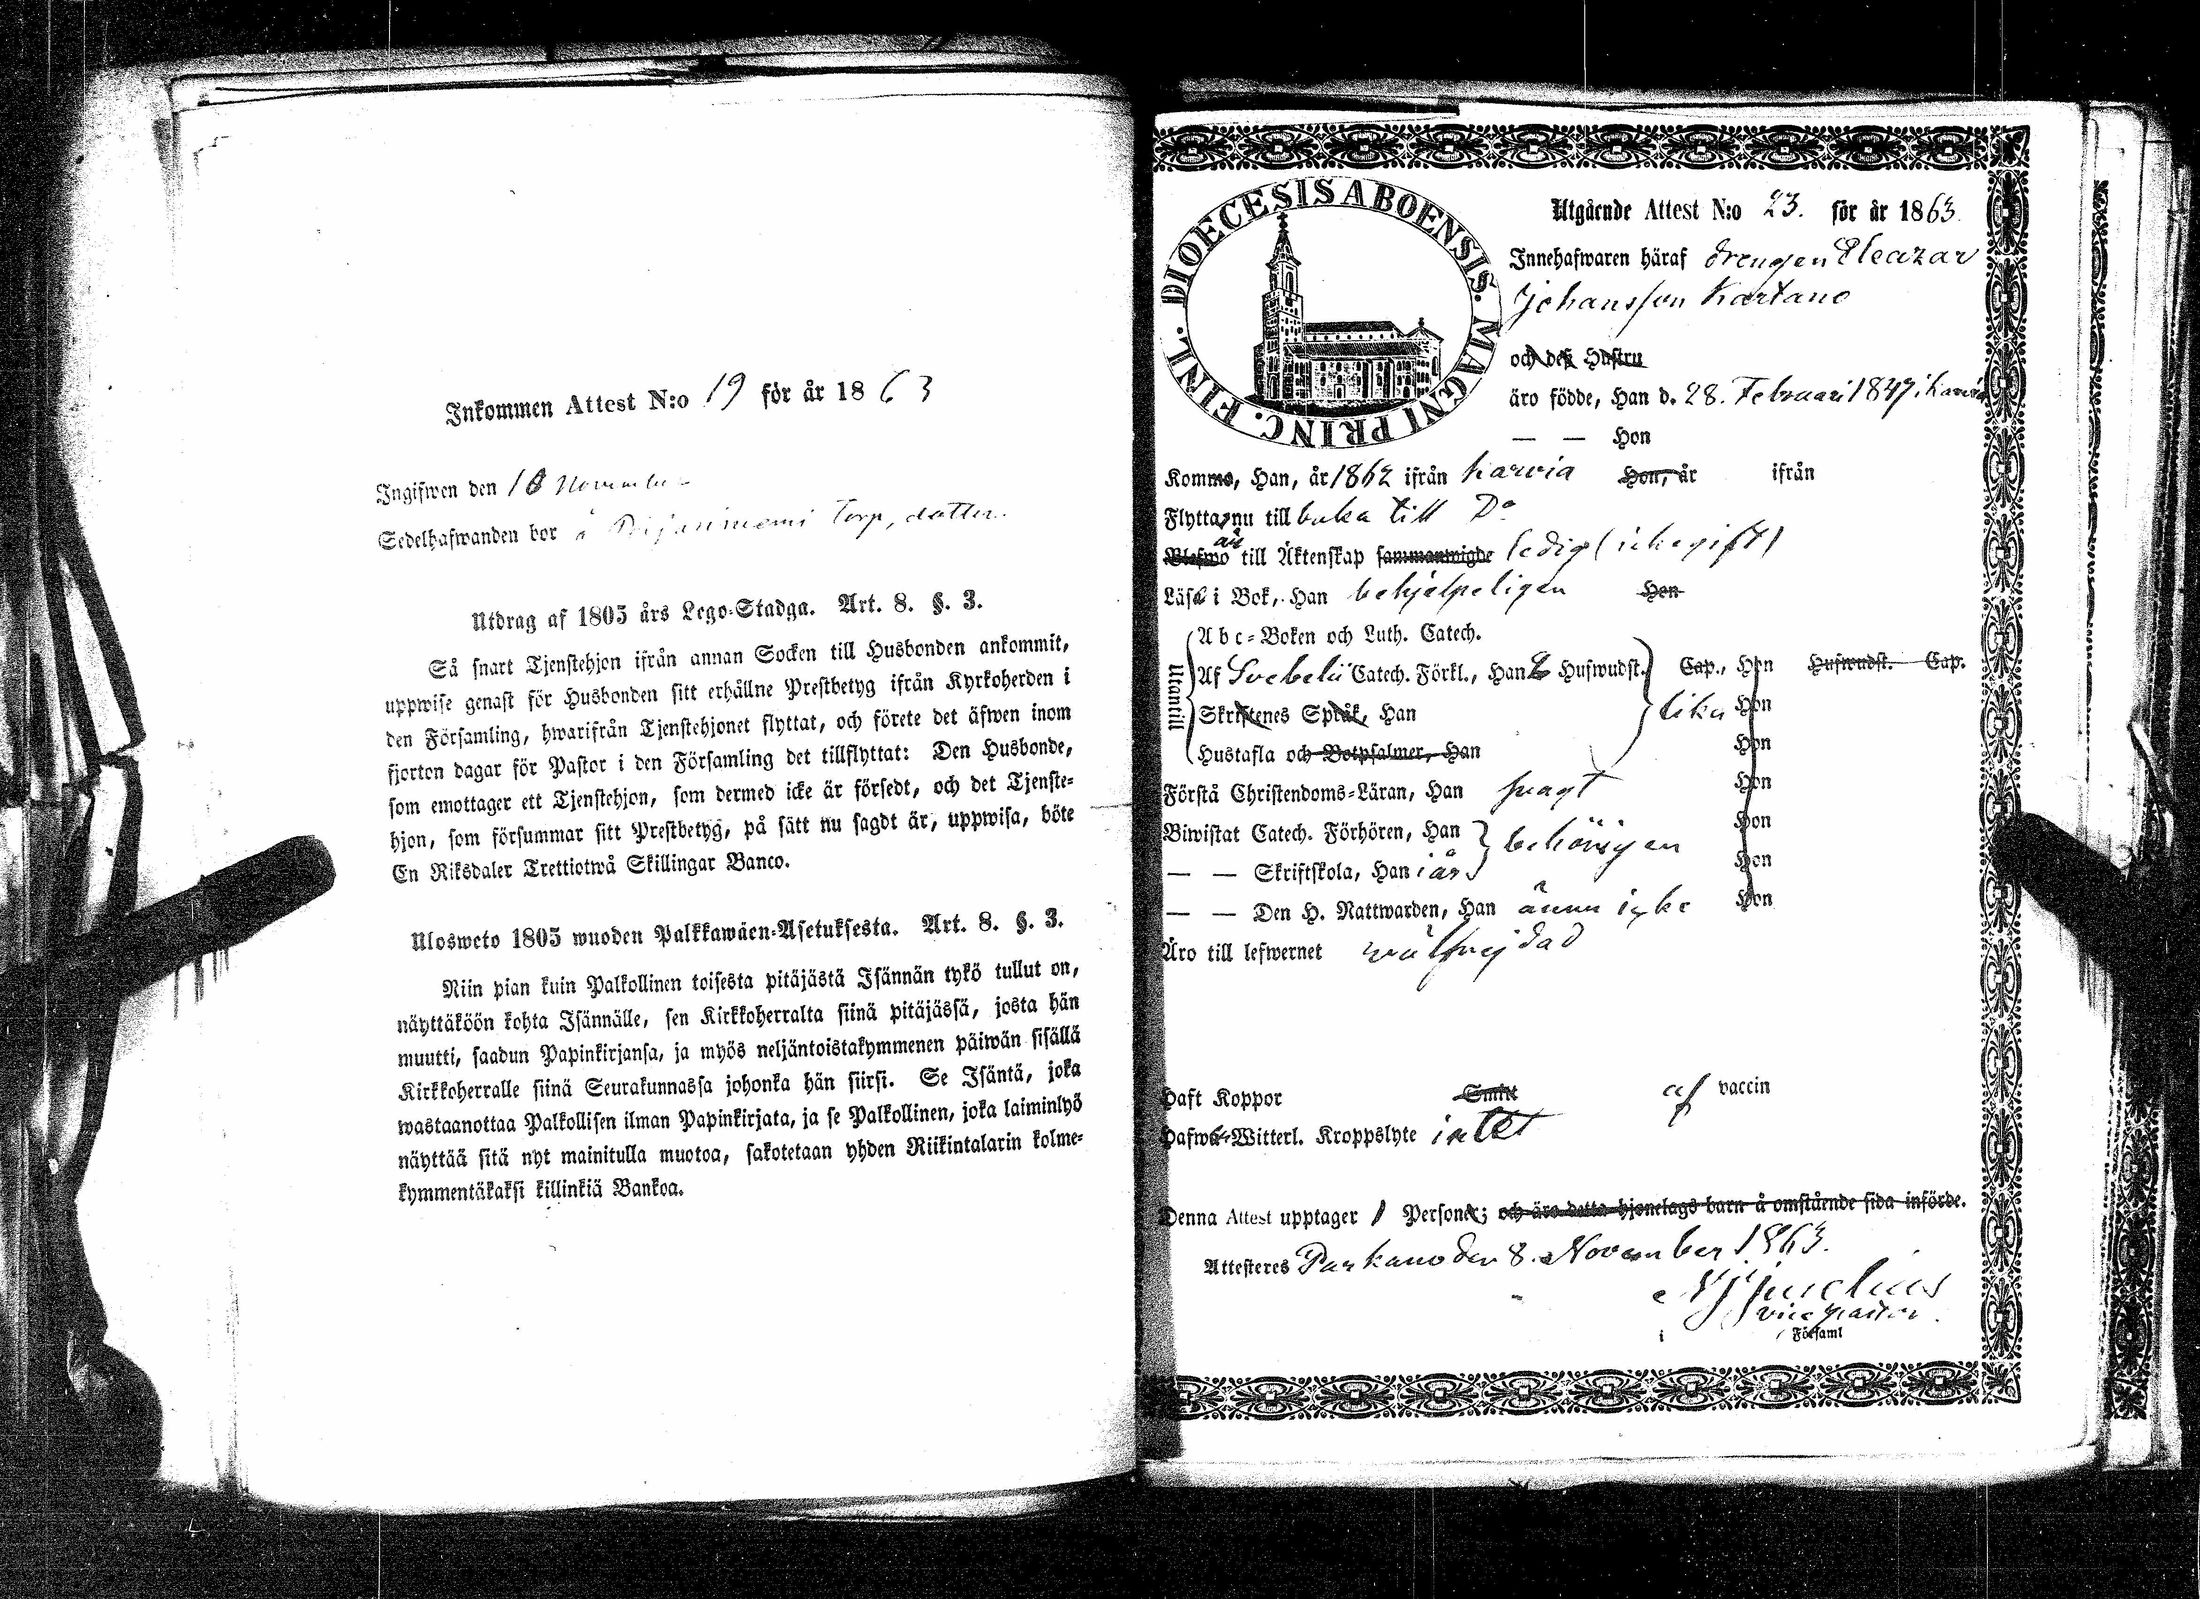 Inkommen Attest N:o 19 för år 1863
Ingifwen den 10 November
Sedelhafwanden bor å Torp, datter.
Utdrag af 1805 års Lego-Stadga. Art. 8. §. 3.
Så snart Tjenstehjon ifrån annan Socken till Husbonden ankommit,
uppwise genast för Husbonden sitt erhållne Prestbetyg ifrån Kyrkoherden i
den Församling, hwarifrån Tjenstehjonet flyttat, och förete det äfwen inom
fjorton dagar för Pastor i den Församling det tillflyttat: Den Husbonde,
som emottager ett Tjenstehjon, som dermed icke är försedt, och det Tjenste-
hjon, som försummar sitt Prestbetyg, på sätt nu sagdt är, uppwisa, böte
En Riksdaler Trettiotwå Skillingar Banco.
Ulosweto 1805 wuoden Palkkawäen-Asetuksesta. Art. 8. §. 3.
Niin pian kuin Palkollinen toisesta pitäjästä Isännän tykö tullut on,
näyttäköön kohta Isännälle, sen Kirkkoherralta siinä pitäjässä, josta hän
muutti, saadun Papinkirjansa, ja myös neljäntoistakymmenen päiwän sisällä
Kirkkoherralle siinä Seurakunnassa johonka hän siirsi. Se Isäntä, joka
wastaanottaa Palkollisen ilman Papinkirjata, ja se Palkollinen, joka laiminlyö
näyttää sitä nyt mainitulla muotoa, sakotetaan yhden Riikintalarin kolme-
kymmentäkaksi killinkiä Bankoa.
DIOECESIS ABOENSIS. MAGNI PRINC. FINL.
Utgående Attest N:o 23. för år 1863
Innehafwaren häraf drengen Eleazar
Johansson Kartano
och deß Hustru
äro födde, Han d. 28. Februari 1847 i Karvia
— — Hon
Komme, Han, år 1862 ifrån Karvia Hon, år ifrån
Flytta nu till buka till Do
Blefwo är till Äktenskap sammanwigde ledig (icke gift)
Läsa i Bok, Han behjelpeligen Hon
Utantill
Abc-Boken och Luth. Catech.
Af Svebelii Catech. Förkl., Han Hufwudst. Cap., Hon Hufwudst. Cap.
Skriftenes Språk, Han lika Hon
Hustafla och Botpsalmer, Han Hon
Förstå Christendoms-Läran, Han svagt Hon
Biwistat Catech. Förhören, Han behörigen Hon
— — Skriftskola, Han i år Hon
— — Den H. Nattwarden, Han ännu icke Hon
Äro till lefwernet wälfrejdad
Haft Koppor Smitt af vaccin
Hafwa Witterl. Kroppslyte intet
Denna Attest upptager 1 Personer; och äro detta hjonelags barn å omstående sida införde.
Attesteres Parkano den 8. November 1863.
vice pastor.
i Församl